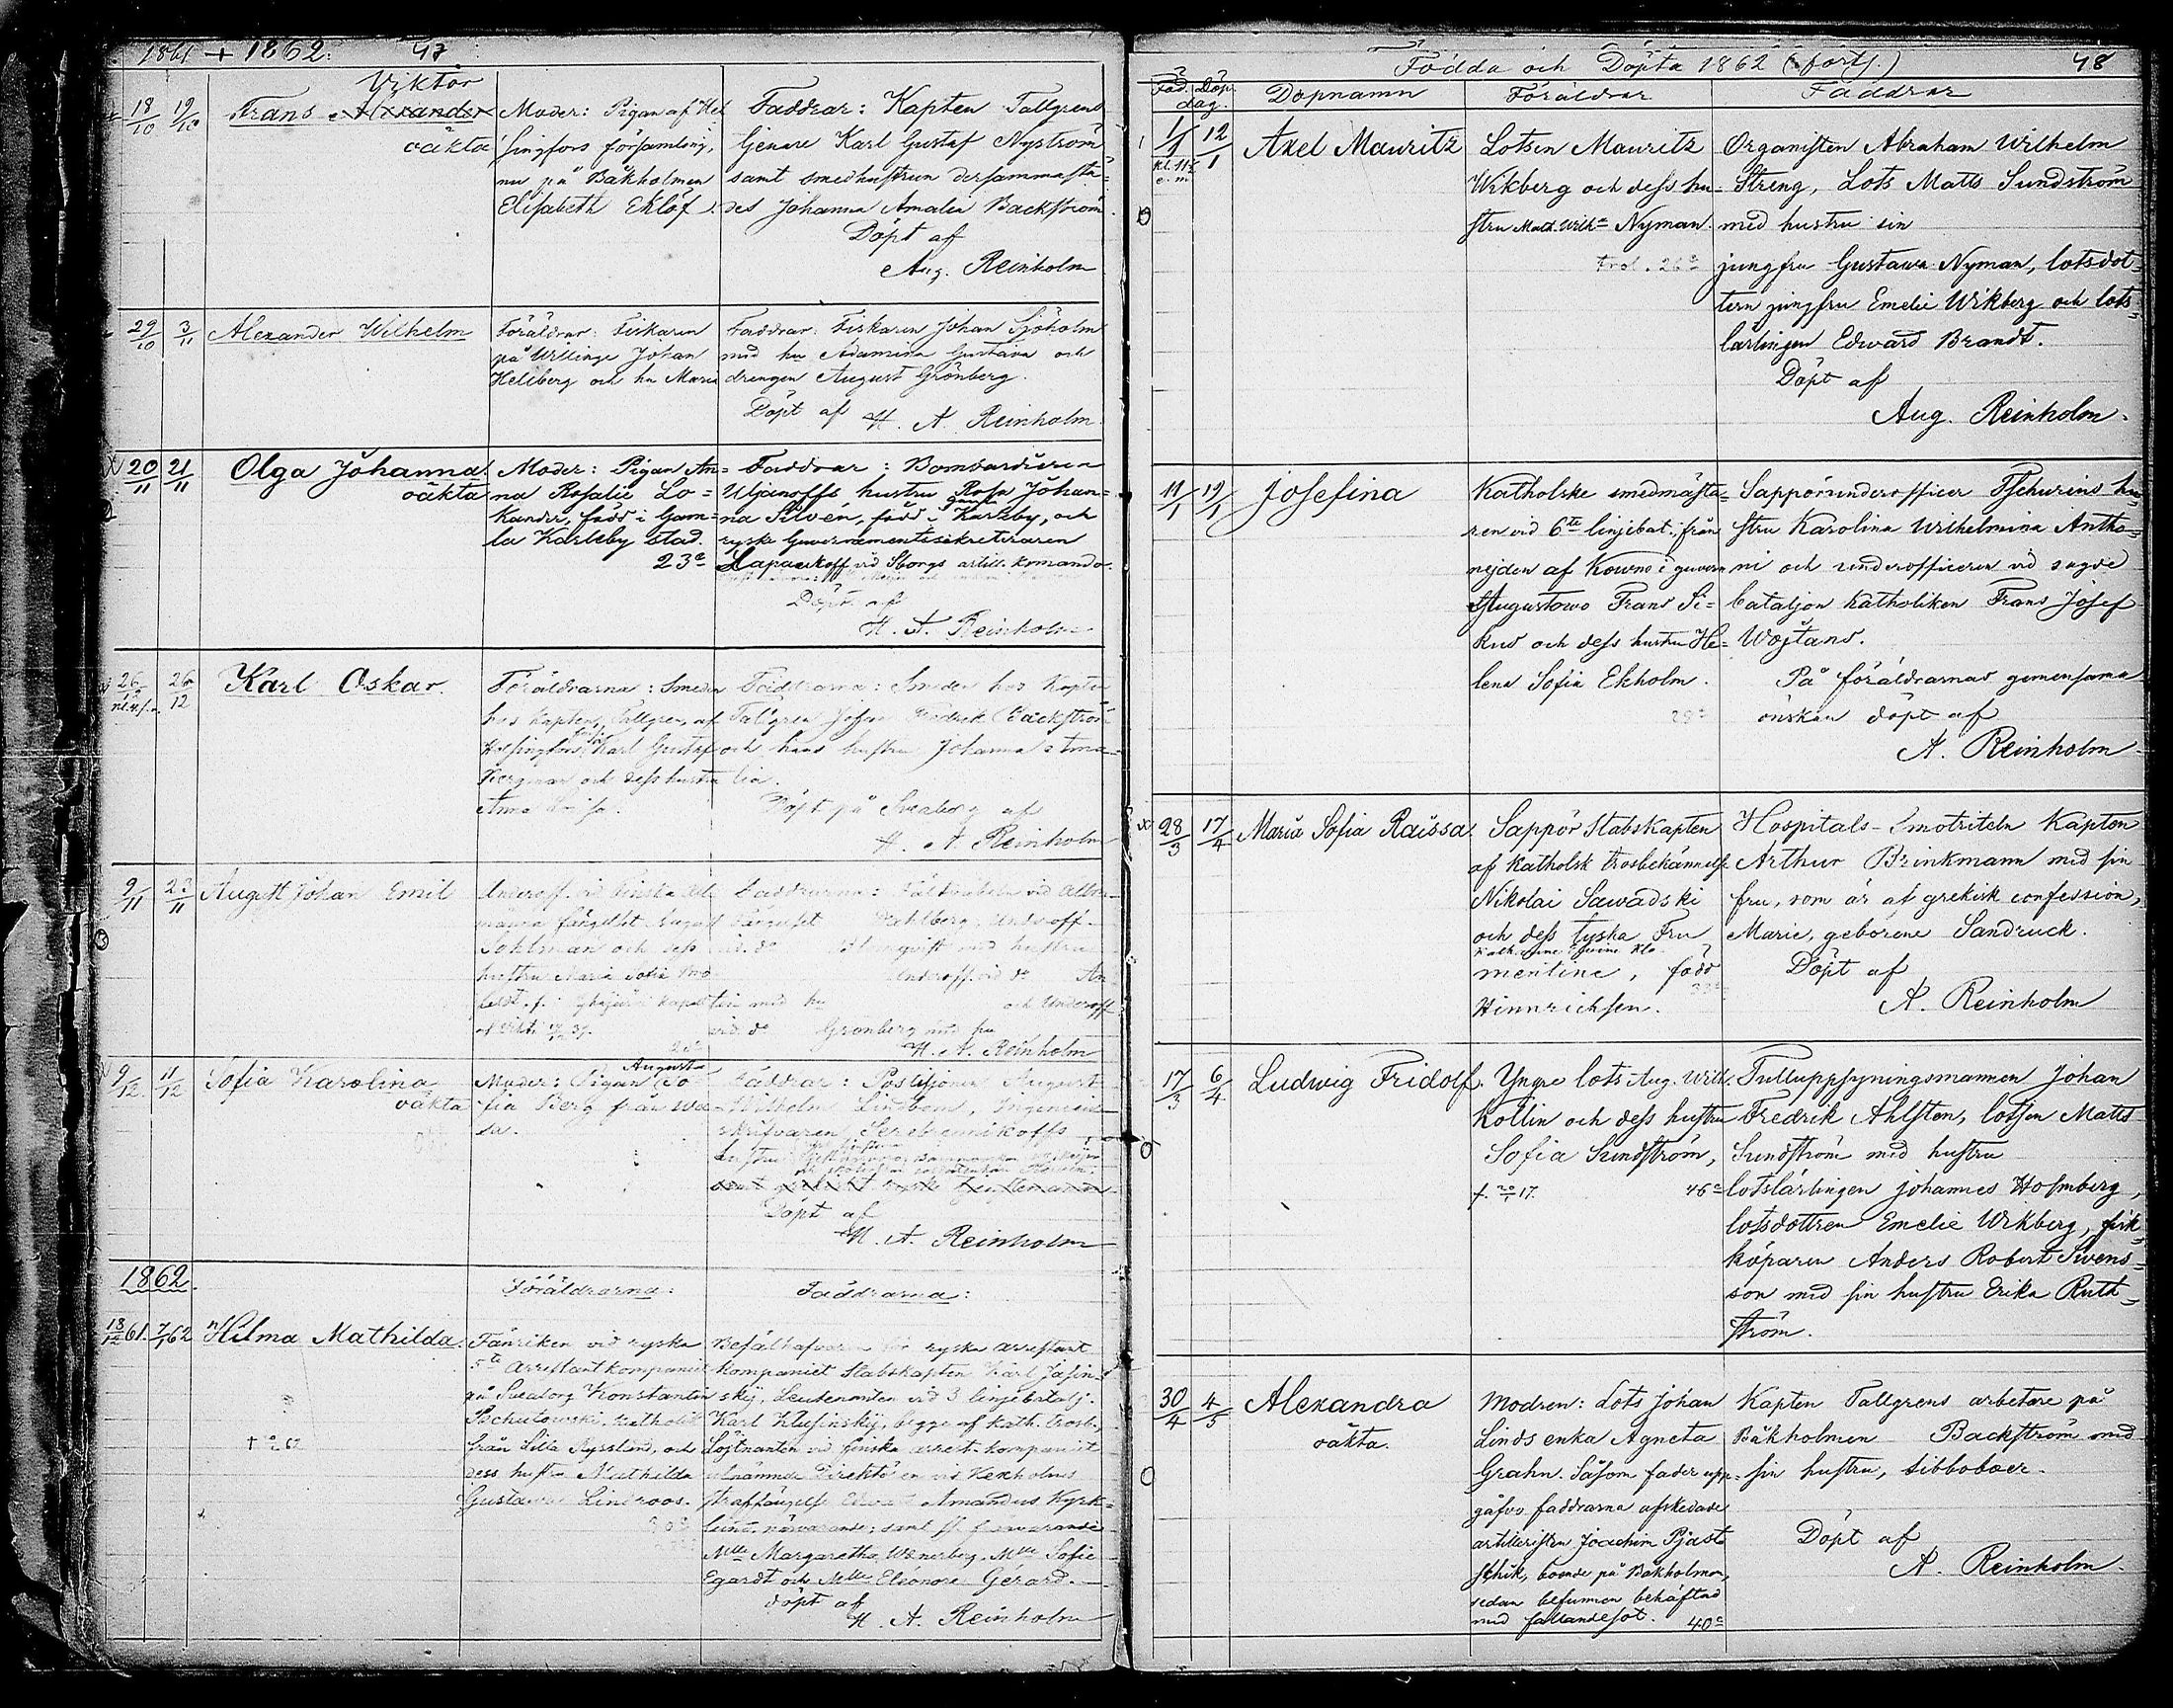 1861 + 1862. 47
18/10 19/10 Frans Viktor
oäkta
Moder: Pigan af Hel
singfors församling,
nu på Bakholmen
Elisabeth Eklöf.
Faddrar: Kapten Tallgrens
tjenare Karl Gustaf Nyström
samt smedhustrun dersammastä-
des Johanna Amalia Backström
Döpt af
Aug. Reinholm
29/10 3/11 Alexander Wilhelm
Föräldrar: Fiskaren
på Willinge Johan
Hellberg och hu Maria
Faddrar: Fiskaren Johan Sjöholm
med hu Adamina Gustava och
drengen August Grönberg.
Döpt af H. A. Reinholm
20/11 21/11 Olga Johanna
oäkta
Moder: Pigan An-
na Rosalie Lo-
kander, född i Gam-
la Karleby stad.
23a
Faddrar: Bombardieren
Uljanoffs hustru Rosa Johan-
na Silvén, född i Karleby, och
ryske Guvernementssekreteraren
Lapunkoff vid Sborgs artill. komando.
Döpt af
H. A. Reinholm
26/12 26/12 Karl Oskar.
Föräldrarna: Smeden
hos Kapten Tallgren, af
Helsingfors Karl Gustaf
Bergman och dess hustru
Anna
Faddrarna: Smeden hos Kapten
Tallgren Johan Fredrik Backström
och hans hustru Johanna Ama-
lia.
Döpt på Sveaborg af
H. A. Reinholm
9/11 23/11 August Johan Emil
Underoff. vid finska
fängelset August
Sohlman och dess
hustru Maria Sofia
Faddrarna: vid
fängelset Dahlberg, Underoff.
vid do med hustru
underoff. vid do
med hu och Underoff
vid do Grönberg med hu
H. A. Reinholm
9/12 11/12 Sofia Karolina
oäkta
Moder: Pigan Augusta So
fia Berg från Wa-
sa.
Faddrar: Postiljonen August
Wilhelm Lindbom, Ingeniör
skrifvaren Serebrennikoffs
hustru
Döpt af
H. A. Reinholm
1862.
Föräldrarna: Faddrarna:
18/12 61. 7/1 62 Hilma Mathilda.
Fänriken vid ryska
5te Arrestantkompaniet
på Sveaborg Konstantin
katholik
från Lilla Ryssland, och
dess hustru Mathilda
Gustava Lindroos.
Befälhafvaren för ryska arrestant
kompaniet Stabskapten Karl Jasin-
skij, Leutenanten vid 3 linjebatalj.
Karl Klusinskij, begge af kath. trosb.,
Löjtnanten vid finska arrest. kompaniet
utnämnde Direktören vid Kexholms
straffängelse Amandus Kyrk-
lund, närvarande; samt frånvarande
Mlle Margaretha Wenerberg, Mlle Sofie
Egardt och Mlle Eleonore Gerard.
döpt af
H. A. Reinholm
Födda och Döpta 1862 (forts.) 48
Föd. Döp.
dag. Dopnamn Föräldrar Faddrar
1/1 12/1 Axel Mauritz
Lotsen Mauritz
Wikberg och dess hu-
stru Mat. Wilh:a Nyman.
26a
Organisten Abraham Wilhelm
Streng, Lots Matts Sundström
med hustru sin
jungfru Gustawa Nyman, lotsdot-
tern jungfru Emelie Wikberg och lots-
lärlingen Edward Brandt.
Döpt af
Aug. Reinholm.
11/1 19/1 Josefina
Katholske smedmästa-
ren vid 6te linjebat., från
nejden af Kowno i guvern
Augustowo Frans Si-
kus och dess hustru He-
lena Sofia Ekholm.
28a
Sappörunderofficer Tschurins hu
stru Karolina Wilhelmina Antho-
ni och underofficeren vid sagde
bataljon katholiken Frans Josef
Wojtans.
På föräldrarnas gemensama
önskan döpt af
A. Reinholm
28/3 17/4 Maria Sofia Raissa.
Sappör Stabskapten
af katholsk trosbekännelse
Nikolai Sawadski
och dess tyska Fru
mentine, född
Hinnrichsen.
Hospitals-Smotriteln Kapten
Arthur Brinkmann med sin
fru, som är af grekisk confession,
Marie, geborene Sandruck.
Döpt af
A. Reinholm
17/3 6/4 Ludwig Fridolf.
Yngre lots Aug. Wilh.
Kollin och dess hustru
Sofia Sundström,
f. 20/7 17. 46a
Tulluppsyningsmannen Johan
Fredrik Ahlsten, lotsen Matts
Sundström med hustru
lotslärlingen Johannes Holmberg,
lotsdottren Emelie Wikberg, fisk-
köparen Anders Robert Svens-
son med sin hustru Erika Ruth-
ström.
30/4 4/5 Alexandra
oäkta.
Modren: Lots Johan
Linds enka Agneta
Grahn. Såsom fader upp-
gåfvo faddrarna afskedade
artilleristen Joachim Pjast
schik, boende på Bakholmen,
sedan befunnen behäftad
med fallandesot. 40a
Kapten Tallgrens arbetare på
Bakholmen Backström med
sin hustru, Sibboboer.
Döpt af
A. Reinholm.